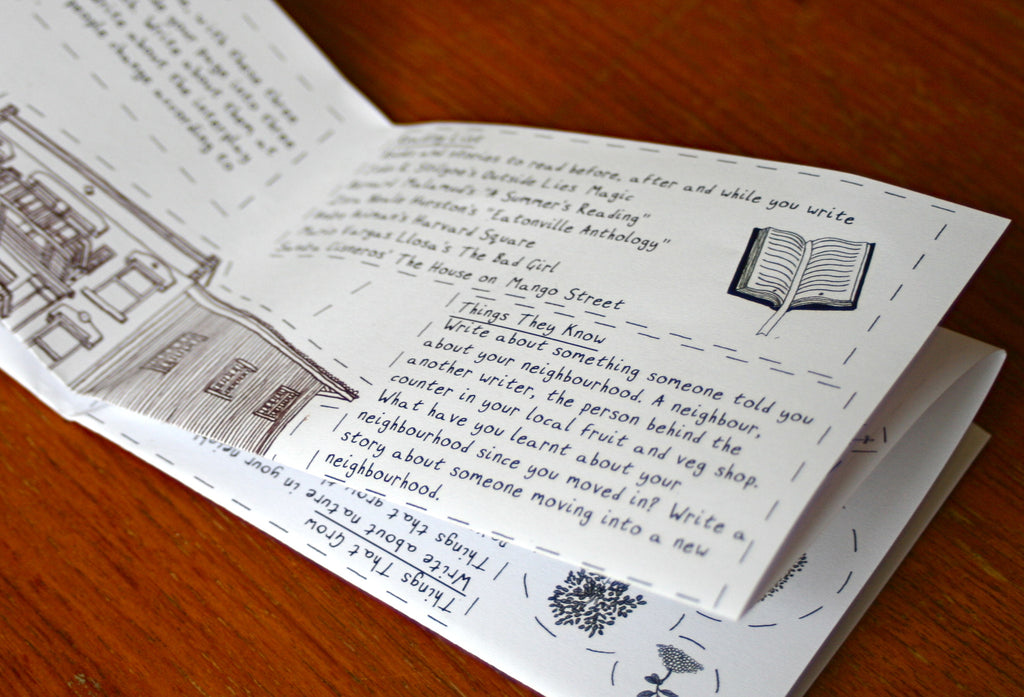 with these three
your page into three
Write about them at
about the interplay
people change according to
Reading List
stories to read before, after and while you write
Stilgoe's Outside Lies Magic
Bernard Malamud's "A Summer's Reading"
Zora Neale Hurston's "Eatonville Anthology"
Aciman's Harvard Square
Mario Vargas Llosa's The Bad Girl
Sandra Cisneros' The House on Mango Street
Things They Know
Write about something someone told you
about your neighbourhood. A neighbour,
another writer, the person behind the
counter in your local fruit and veg shop.
What have you learnt about your
neighbourhood since you moved in? Write a
story about someone moving into a new
neighbourhood.
Things That Grow
Write about nature in your
Things that grow